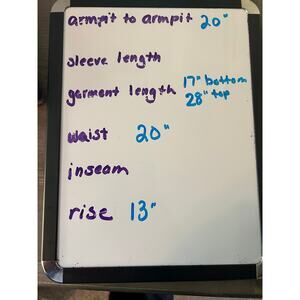 armpit to armpit 20"
sleeve length
garment length 17" bottom
28" top
waist 20"
inseam
rise 13"